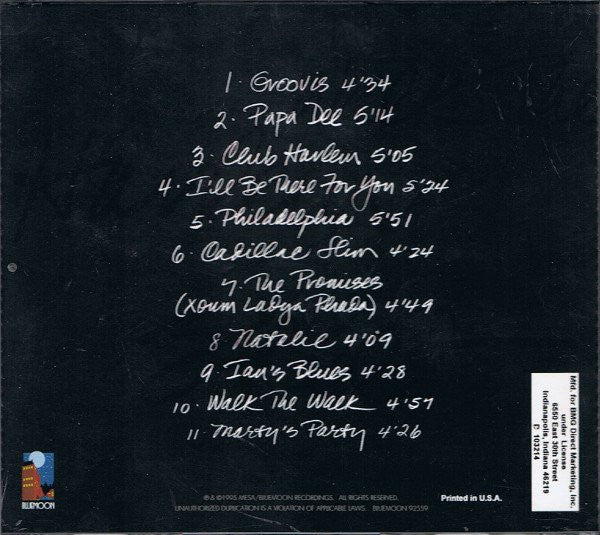 1. Groovis 4'34
2. Papa Dee 5'14
3. Club Harlem 5'05
4. I'll Be There For You 5'24
5. Philadelphia 5'51
6. Cadillac Slim 4'24
7. The Promises
(Xoum Ladya Phada) 4'49
8 Natalie 4'09
9. Ian's Blues 4'28
10. Walk The Walk 4'57
11. Marty's Party 4'26
Mfd. for BMG Direct Marketing, Inc.
under License
6550 East 30th Street
Indianapolis, Indiana 46219
D 103214
BLUEMOON
℗ & © 1995 MESA/BLUEMOON RECORDINGS. ALL RIGHTS RESERVED.
UNAUTHORIZED DUPLICATION IS A VIOLATION OF APPLICABLE LAWS. BLUEMOON 92559
Printed in U.S.A.